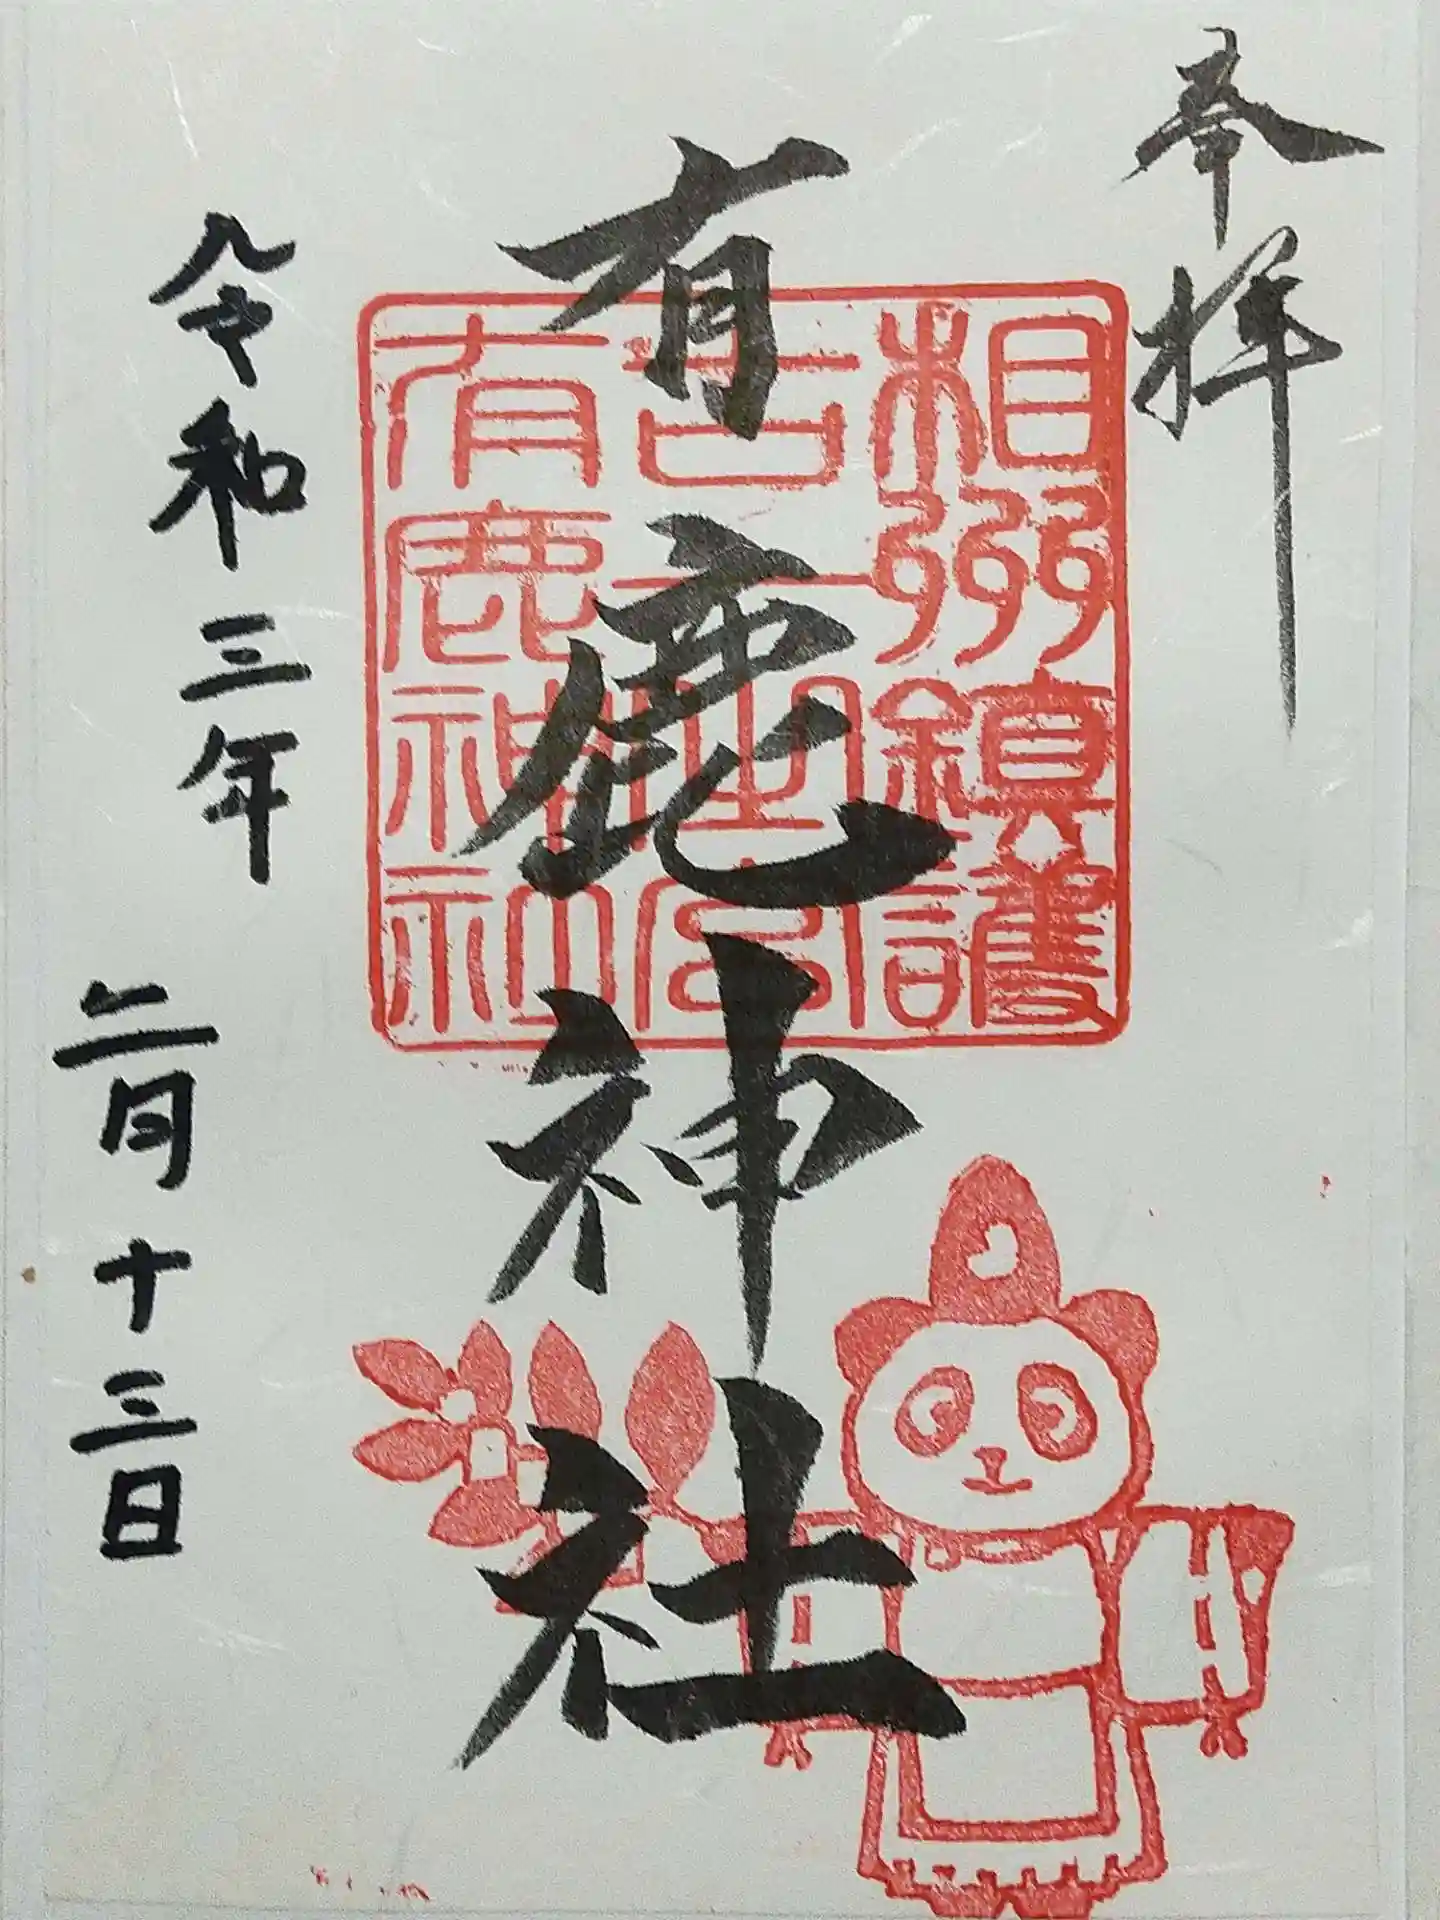 奉拝
有鹿神社
相州鎮護
古一之宮
有鹿神社
令和三年
二月十三日